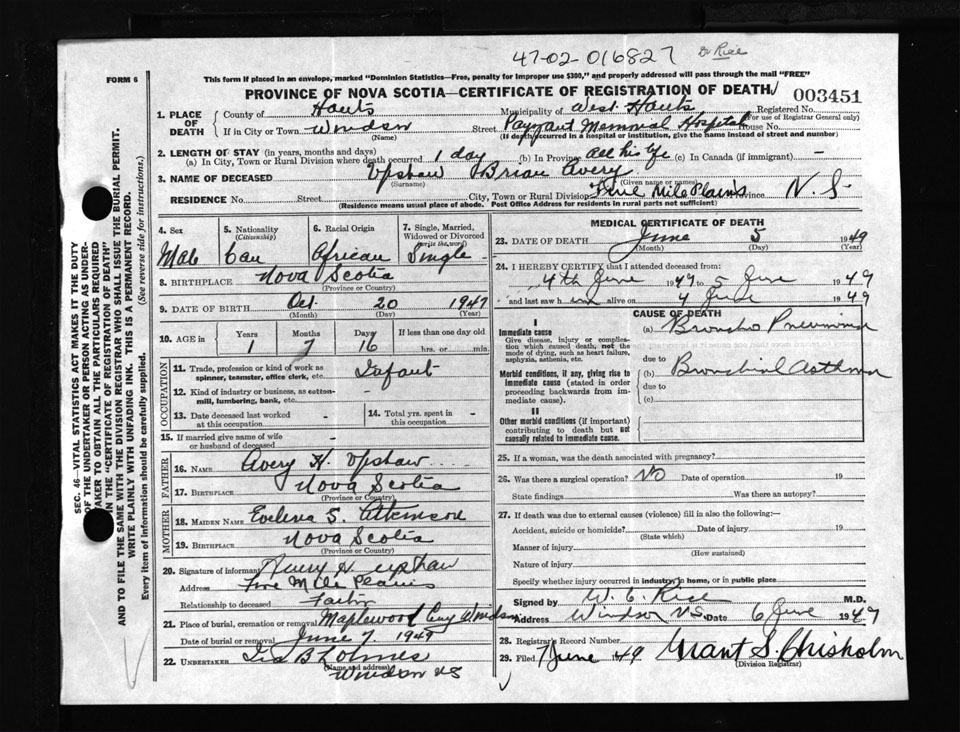 47-02 016827 Dr Rice
FORM 6
This form if placed in an envelope, marked "Dominion Statistics—Free, penalty for improper use $300," and properly addressed will pass through the mail "FREE"
PROVINCE OF NOVA SCOTIA—CERTIFICATE OF REGISTRATION OF DEATH
003451
1. PLACE OF DEATH
County of Hants Municipality of West Hants Registered No.
(For use of Registrar General only)
If in City or Town Windsor Street Payzant Memorial Hospital House No.
(Name) (If death occurred in a hospital or institution, give the name instead of street and number)
2. LENGTH OF STAY (in years, months and days)
(a) In City, Town or Rural Division where death occurred 1 day (b) In Province all his life (c) In Canada (if immigrant) –
3. NAME OF DECEASED Upshaw Brian Avery
(Surname) (Given name or names)
RESIDENCE No. Street City, Town or Rural Division Five Mile Plains Province N.S.
(Residence means usual place of abode. Post Office Address for residents in rural parts not sufficient)
4. Sex 5. Nationality (Citizenship) 6. Racial Origin 7. Single, Married, Widowed or Divorced (write the word)
Male Can African Single
8. BIRTHPLACE Nova Scotia
(Province or Country)
9. DATE OF BIRTH Oct. 20 1947
(Month) (Day) (Year)
10. AGE in Years Months Days If less than one day old
1 7 16 hrs. or min.
OCCUPATION
11. Trade, profession or kind of work as spinner, teamster, office clerk, etc. Infant
12. Kind of industry or business, as cotton-mill, lumbering, bank, etc. -
13. Date deceased last worked at this occupation - 14. Total yrs. spent in this occupation -
15. If married give name of wife or husband of deceased -
FATHER
16. NAME Avery H. Upshaw
17. BIRTHPLACE Nova Scotia
(Province or Country)
MOTHER
18. MAIDEN NAME Evelena S. Atkinson
19. BIRTHPLACE Nova Scotia
(Province or Country)
20. Signature of informant Avery H. Upshaw
Address Five Mile Plains
Relationship to deceased Father
21. Place of burial, cremation or removal Maplewood Cmy Windsor
Date of burial or removal June 7 1949
22. UNDERTAKER Ira B Lohnes
(Name and address)
Windsor NS
MEDICAL CERTIFICATE OF DEATH
23. DATE OF DEATH June 5 1949
(Month) (Day) (Year)
24. I HEREBY CERTIFY that I attended deceased from
4th June 1949 to 5 June 1949
and last saw him alive on 4 June 1949
CAUSE OF DEATH
I
Immediate cause
Give disease, injury or complication which caused death, not the mode of dying, such as heart failure, asphyxia, asthenia, etc.
(a) Broncho Pneumonia
due to
Morbid conditions, if any, giving rise to immediate cause (stated in order proceeding backwards from immediate cause).
(b) Bronchial Asthma
due to
(c)
II
Other morbid conditions (if important) contributing to death but not causally related to immediate cause.
25. If a woman, was the death associated with pregnancy?
26. Was there a surgical operation? NO Date of operation 19
State findings Was there an autopsy?
27. If death was due to external causes (violence) fill in also the following:—
Accident, suicide or homicide? Date of injury 19
(State which)
Manner of injury
(How sustained)
Nature of injury
Specify whether injury occurred in industry, in home, or in public place
Signed by W. C. Rice M.D.
Address Windsor N.S. Date 6 June 1949
28. Registrar's Record Number
29. Filed 7 June 1949 Grant S. Chisholm
(Division Registrar)
SEC. 46—VITAL STATISTICS ACT MAKES IT THE DUTY
OF THE UNDERTAKER OR PERSON ACTING AS UNDER-
TAKER TO OBTAIN ALL THE PARTICULARS REQUIRED
IN THE "CERTIFICATE OF REGISTRATION OF DEATH"
AND TO FILE THE SAME WITH THE DIVISION REGISTRAR WHO SHALL ISSUE THE BURIAL PERMIT.
WRITE PLAINLY WITH UNFADING INK. THIS IS A PERMANENT RECORD.
Every item of information should be carefully supplied. (See reverse side for instructions.)